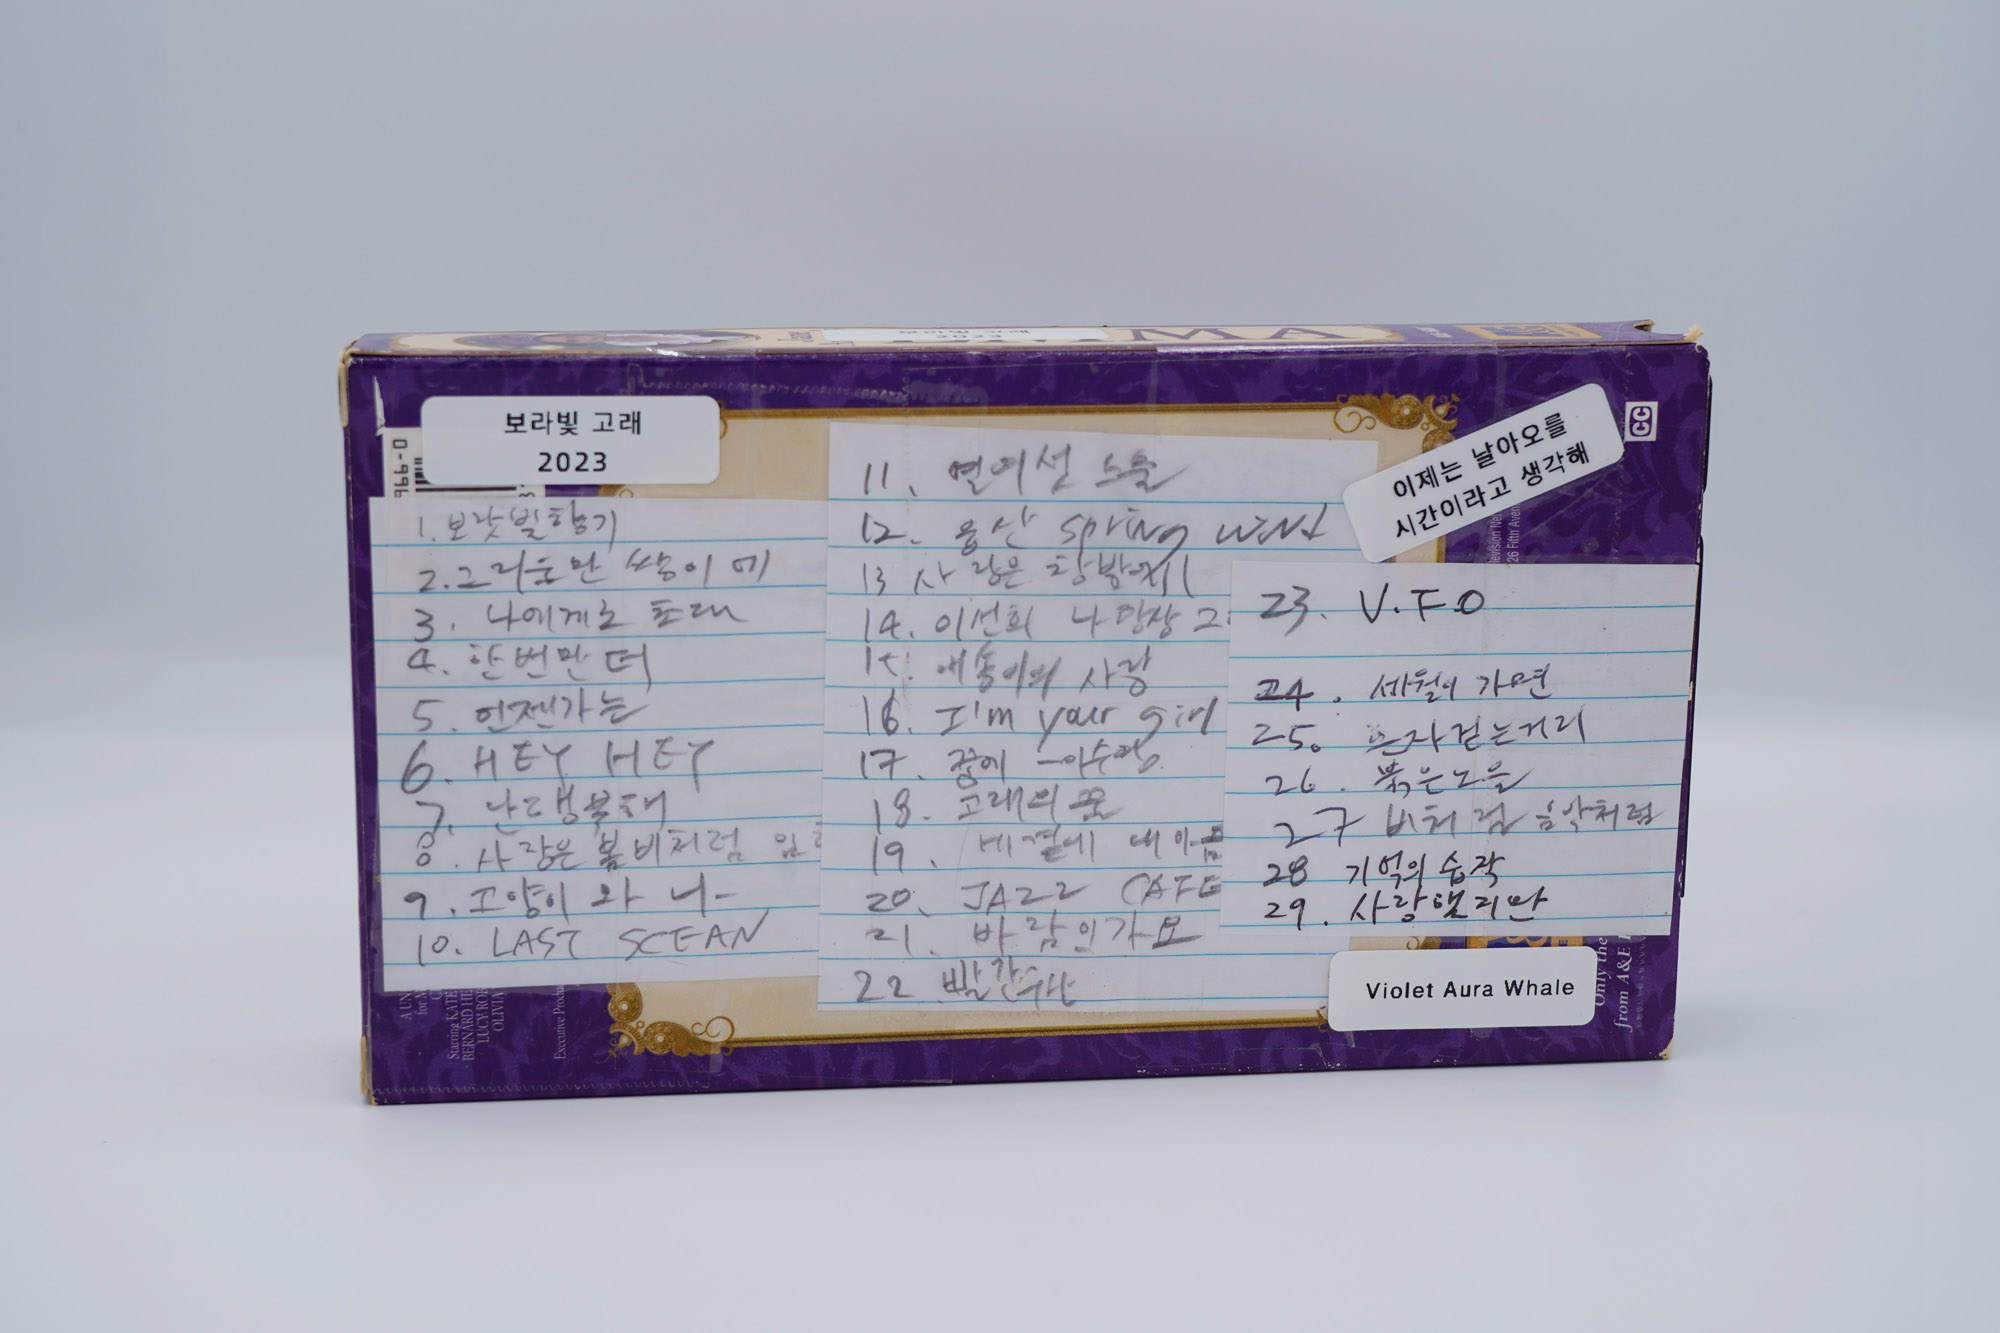 보라빛 고래
2023
1. 보랏빛향기
2. 그리움만 쌓이네
3. 나에게로 초대
4. 한번만 더
5. 언젠가는
6. HEY HEY
7. 난 행복해
8. 사랑은 봄비처럼
9. 고양이 와 나-
10. LAST SCEAN
11. 열여섯 노을
12. 용산 spring wind
13 사랑은 창밖에
14. 이선희 나 항상
15. 애송이의 사랑
16. I'm your girl
17. 꿈에
18. 고래의 꿈
19. 네 곁에 내
20. JAZZ CAFE
21. 바람의가
22. 빨간
23. V.F.O
24. 세월이 가면
25. 혼자걷는거리
26. 붉은노을
27 비처럼 음악처럼
28 기억의 습작
29. 사랑했지만
이제는 날아오를
시간이라고 생각해
Violet Aura Whale
CC
966-0
Starring KATE
BERNARD HE
OLIVIA
Executive Produc
26 Fifth Aven
Only the
from A&E